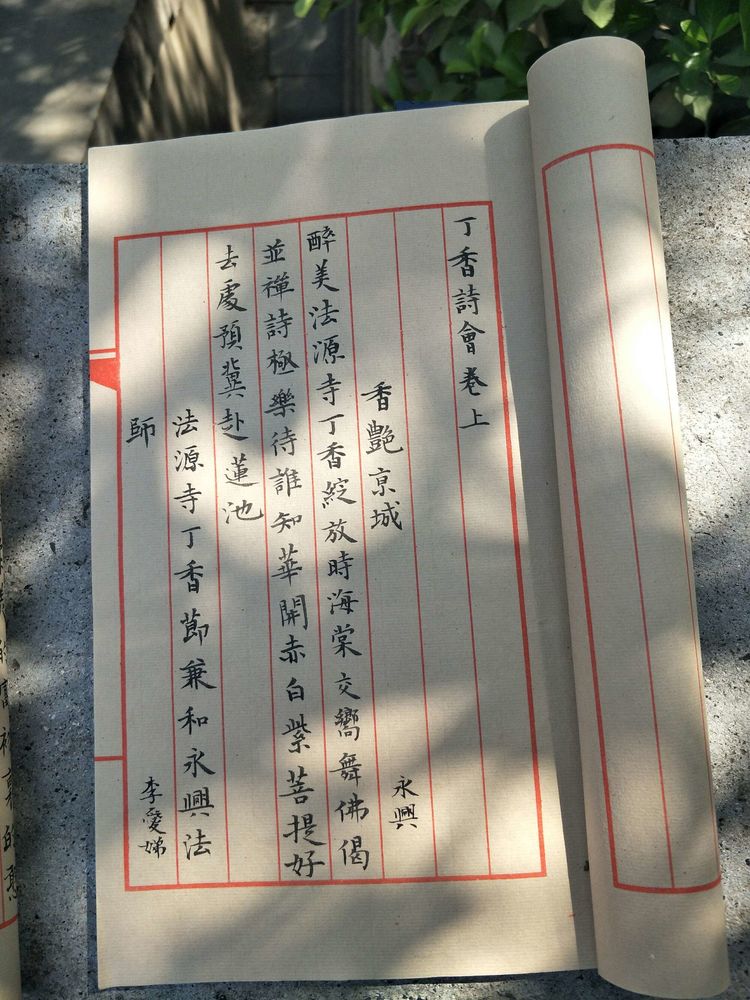 丁香詩會卷上
香艷京城
永興
醉美法源寺丁香綻放時海棠交嚮舞佛偈
並禪詩極樂待誰知華開赤白紫菩提好
去處預冀赴蓮池
法源寺丁香節兼和永興法
師
李愛娣